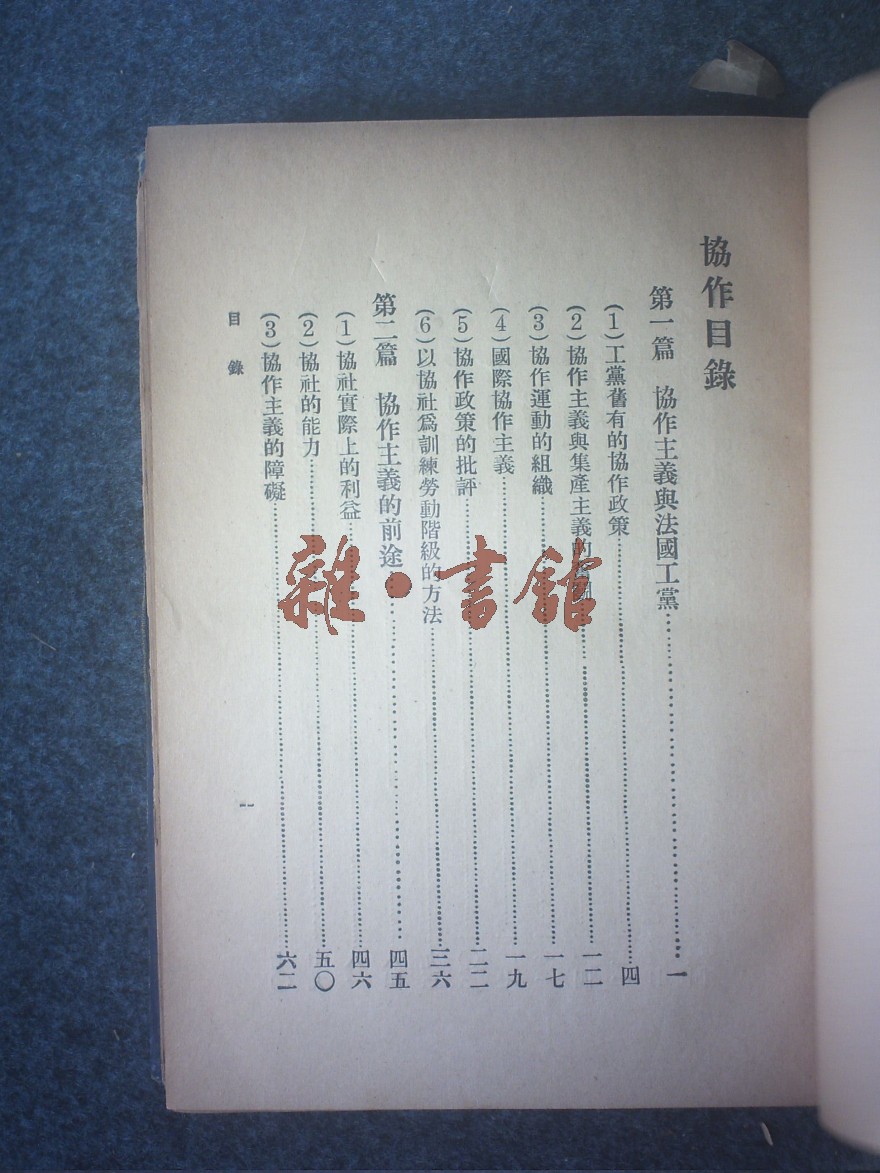 協作目錄
第一篇 協作主義與法國工黨……一
(1)工黨舊有的協作政策……四
(2)協作主義與集產主義的……一二
(3)協作運動的組織……一七
(4)國際協作主義……一九
(5)協作政策的批評……二二
(6)以協社爲訓練勞動階級的方法……三六
第二篇 協作主義的前途……四五
(1)協社實際上的利益……四六
(2)協社的能力……五〇
(3)協作主義的障礙……六二
目錄
一
雜·書館